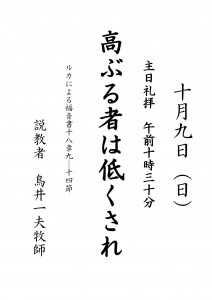 十月九日（日）
主日礼拝　午前十時三十分
高ぶる者は低くされ
ルカによる福音書十八章九―十四節
説教者　鳥井一夫牧師